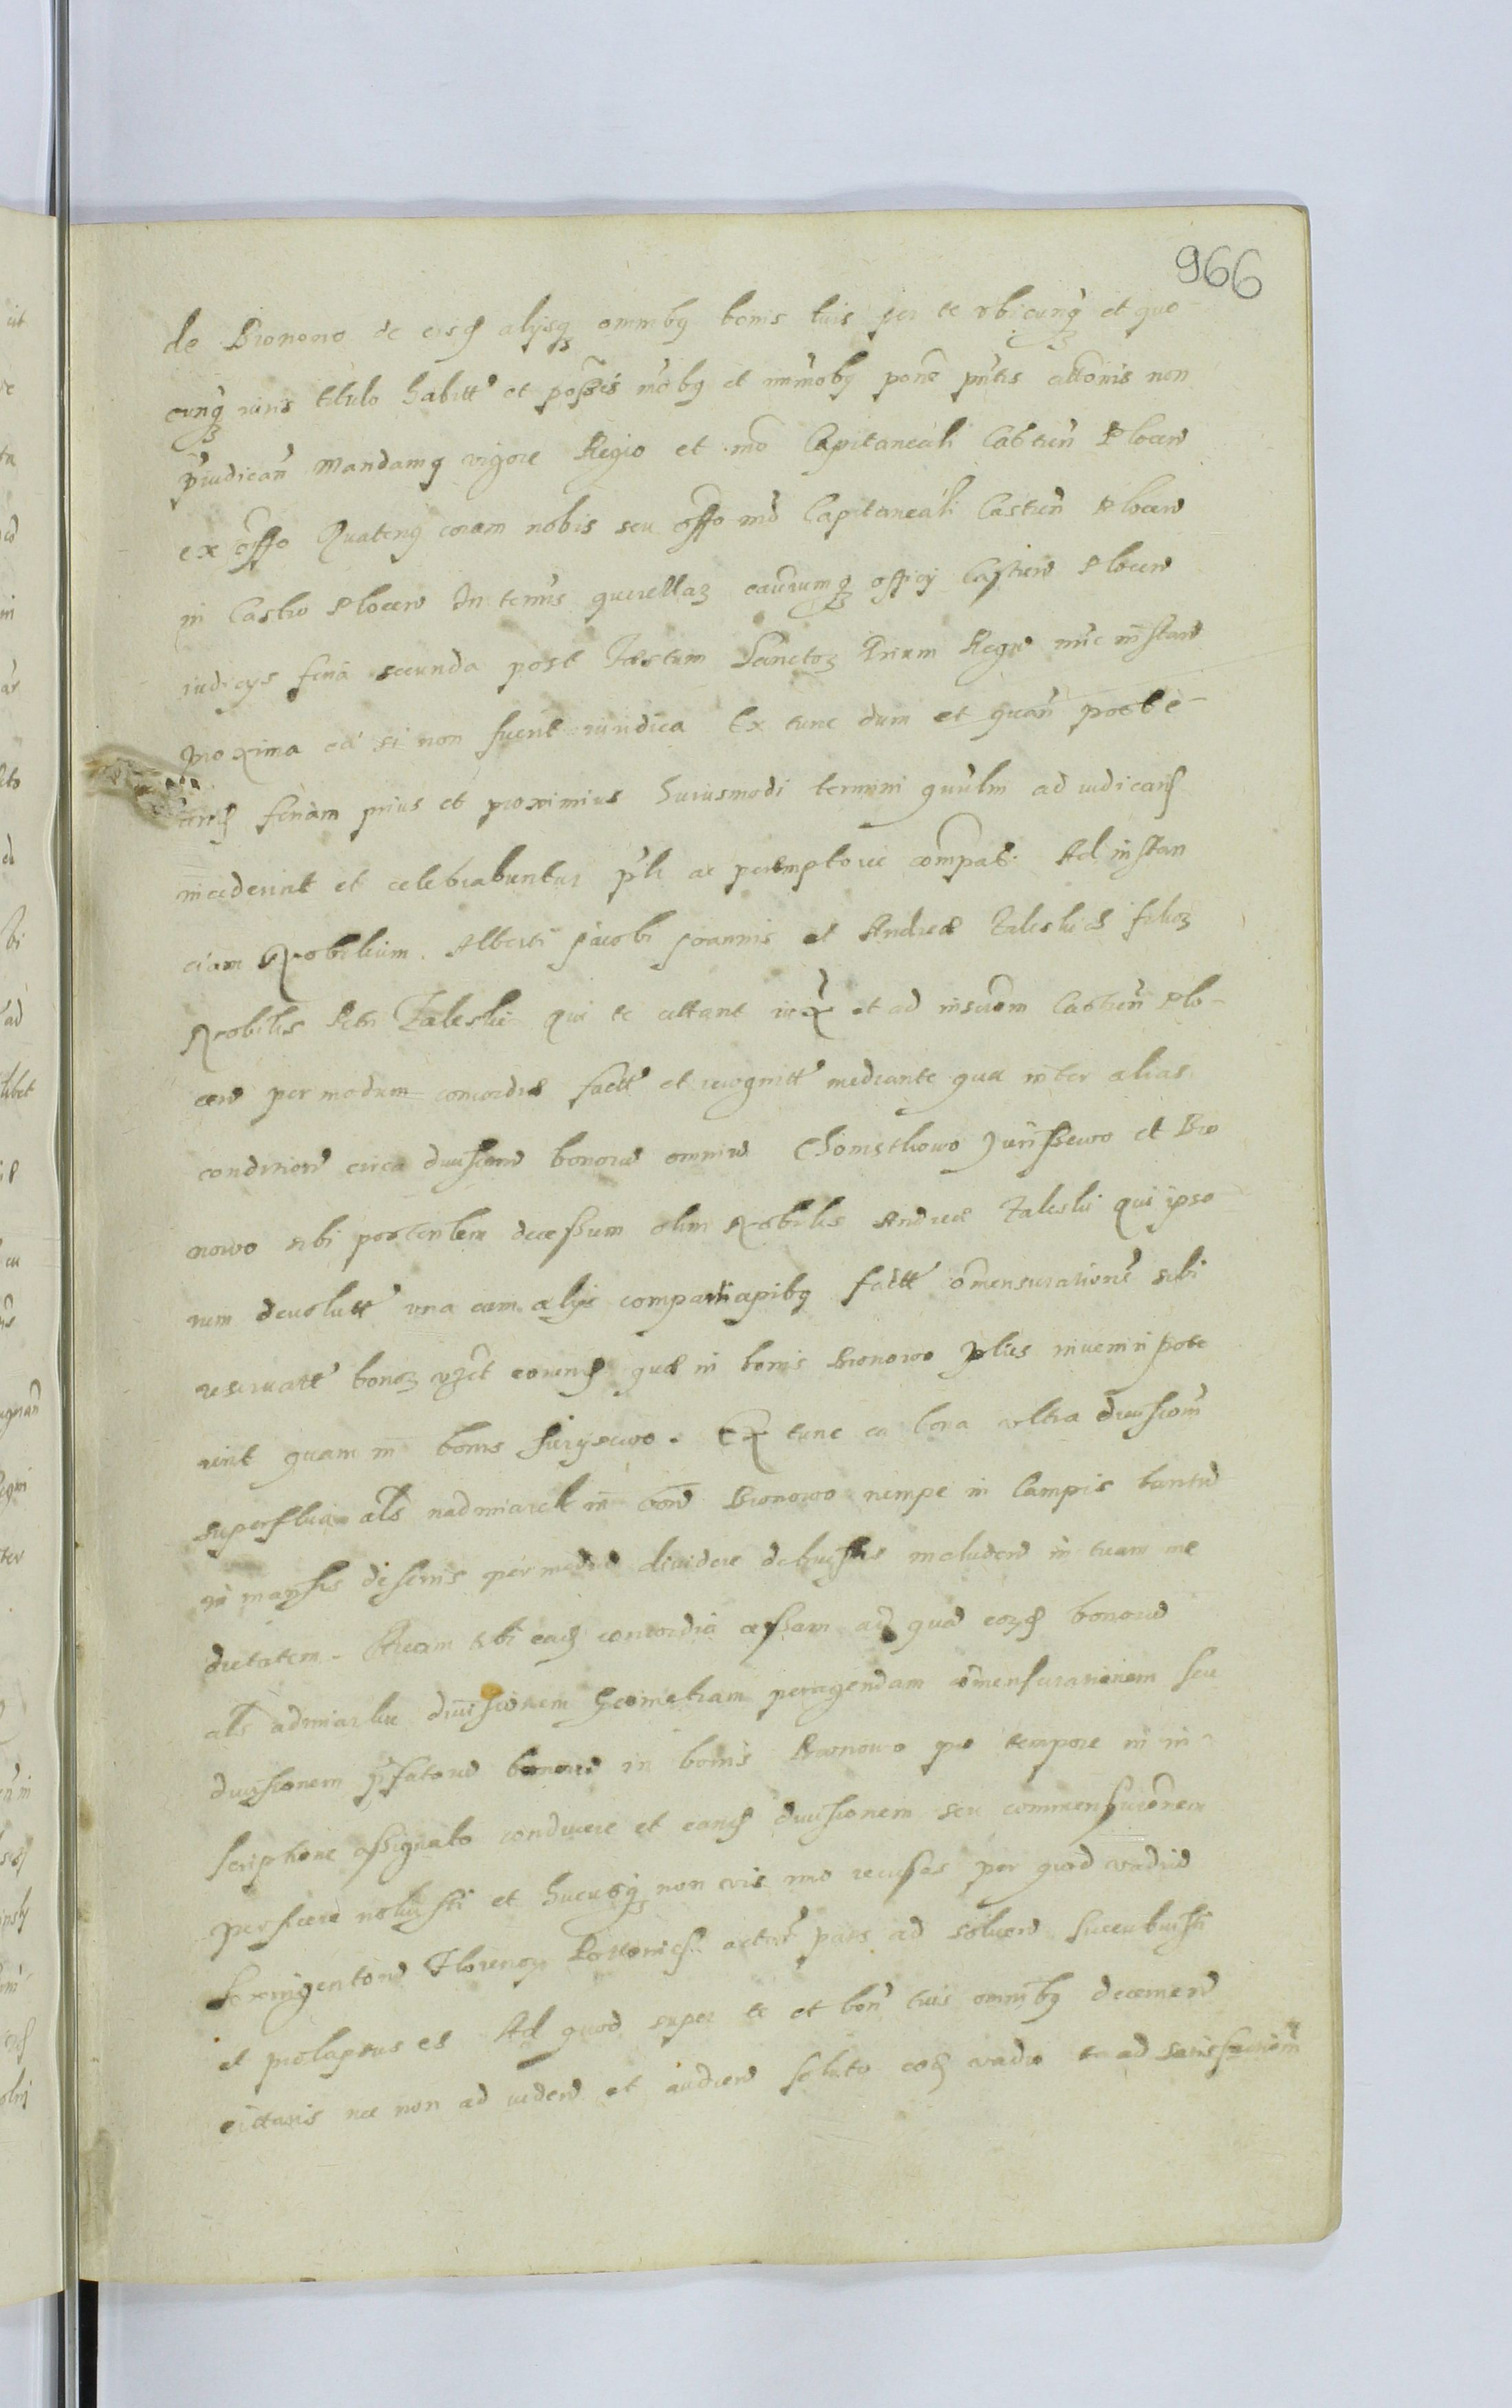 966
de Bronowo de eisd alysq omnibq bonis tuis per te ubicunq et quo
cunq iuris titulo habitt et possis mobq et immobq pone pntis attonis non
piudican Mandamq vigore Regio et mo Capitaneali Castren Plocen
ex offo Quatenq coram nobis seu offo mo Capitaneali Castren Plocen
in Castro Plocen In termis querellaz caurumq officy Castren Plocen
iudicys feria secunda post Festum Sanctoz Trium Regu nuc instan
proxima ea si non fuerit iuridica Ex tunc dum et quan post e-
feriam prius et proximius huiusmodi termini gnulm ad iudicand
inciderint et celebrabuntur plr ac peremptorie compas. Ad instan
ciam Nobilium Alberti Jacobi Joannis et Andreæ Zaleskich filioz
Nobilis Petri Zaleski Qui te cittant et ad inscriom Castren Plo-
cen per modum concordiæ factt et recognitt mediante qua inter alias
condition circa diuision bonoru omniu Chomethowo Juriszewo et Bro
nowo sibi post decessum olim Nobilis Andreæ Zaleski qui ipso
rum deuolutt una cum alys compartiapibq factt omensurationē sibi
reseruatt bonoz eorund quæ in bonis Bronowo plus inueniri pote
rint quam in bonis Juryszewo. Ex tunc ea bona ultra diuisiom
superflua als nadmiarek in bon Bronowo nempe in Campis tantu
in mansis desertis per mediu diuidere debuistis includen in tuam me
dietatem. Quam tibi ead concordia cessam ad qua eozd bonoru
als admiarku diuisionem Geometram peragendam omensurationem seu
diuisionem pfatoru bonoru in bonis Bronowo pro tempore in in-
scriptione assignato conducere et eand diuisionem seu commensuronem
perficere noluisti et hucusq non vis imo recusas per quod vadiu
Sexingentoru Florenoz Polonics. actor pars ad soluen succubuisti
et prolapsus es Ad quod super te et bon tuis omnibq decernen
cittaris nec non ad viden et audien soluto eod vadio te ad satisfaciom